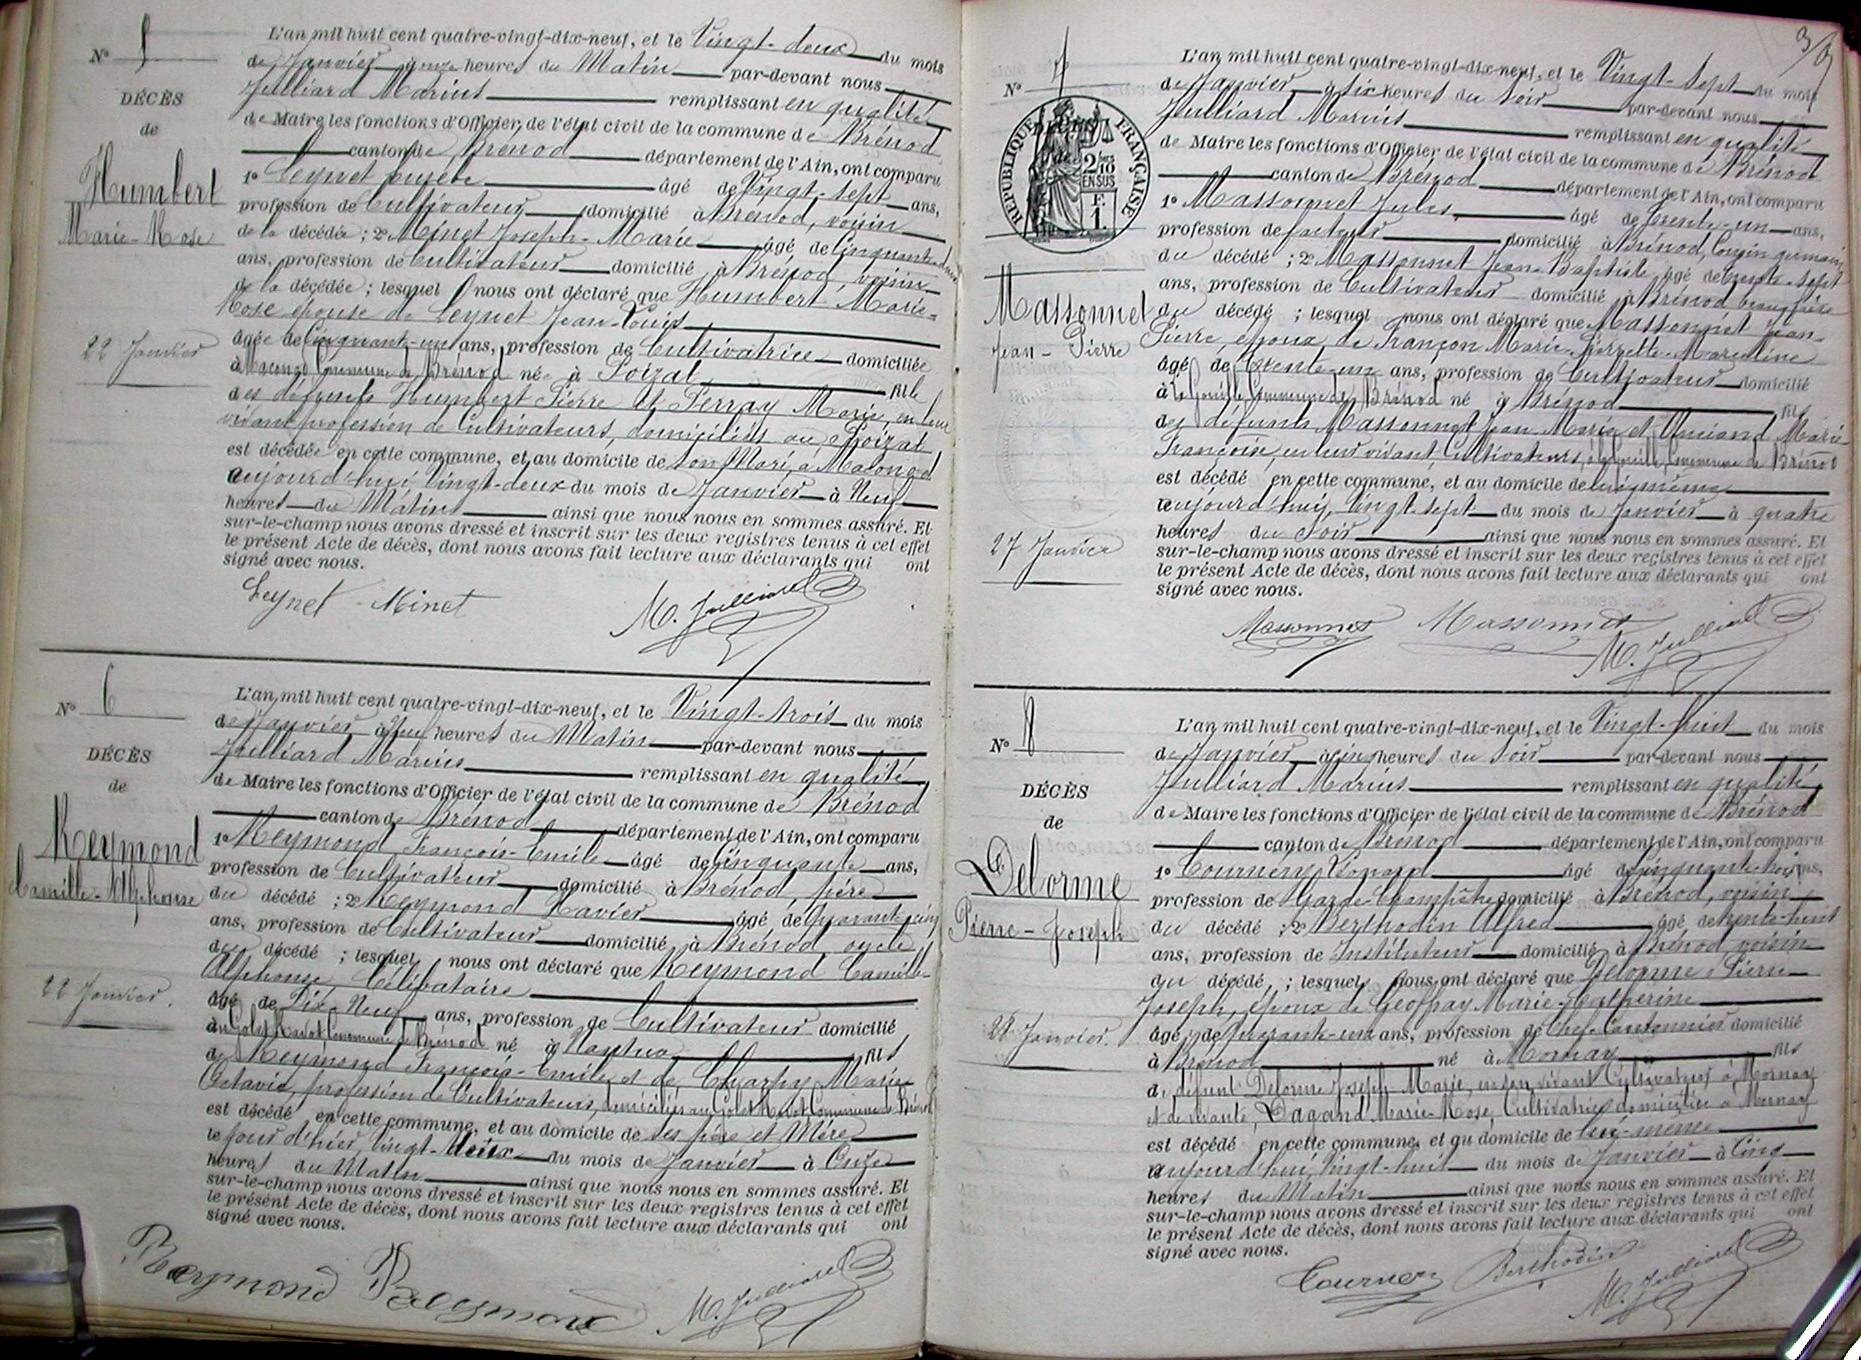 N° 5
DÉCÈS
de
Humbert
Marie-Rose
22 Janvier
L'an mil huit cent quatre-vingt-dix-neuf, et le Vingt-deux du mois
de Janvier à onze heures du Matin par-devant nous
Julliard Marius remplissant en qualité
de Maire les fonctions d'Officier de l'état civil de la commune de Brénod
canton de Brénod département de l'Ain, ont comparu
1° Leynet âgé de Vingt-sept ans,
profession de Cultivateur domicilié à Brénod, voisin
de la décédée ; 2° Minet Joseph-Marie âgé de Cinquante
ans, profession de Cultivateur domicilié à Brénod voisin
de la décédée ; lesquels nous ont déclaré que Humbert Marie-
Rose épouse de Leynet Jean-Louis
âgée de Cinquante-un ans, profession de Cultivatrice domiciliée
à Macongod Commune de Brénod née à Poizat fille
des défunts Humbert Pierre et Perray Marie, en leur
vivant profession de Cultivateurs, domiciliés au Poizat
est décédée en cette commune, et au domicile de son Mari, à Macongod
aujourd'hui Vingt-deux du mois de Janvier à Neuf
heures du Matin ainsi que nous nous en sommes assuré. Et
sur-le-champ nous avons dressé et inscrit sur les deux registres tenus à cet effet
le présent Acte de décès, dont nous avons fait lecture aux déclarants qui ont
signé avec nous.
Leynet Minet M. Julliard
N° 6
DÉCÈS
de
Reymond
Camille-Alphonse
22 Janvier.
L'an mil huit cent quatre-vingt-dix-neuf, et le Vingt-trois du mois
de Janvier à heures du Matin par-devant nous
Julliard Marius remplissant en qualité
de Maire les fonctions d'Officier de l'état civil de la commune de Brénod
canton de Brénod département de l'Ain, ont comparu
1° Reymond François-Emile âgé de Cinquante ans,
profession de Cultivateur domicilié à Brénod, père
du décédé ; 2° Reymond Xavier âgé de Quarante-cinq
ans, profession de Cultivateur domicilié à Brénod, oncle
du décédé ; lesquels nous ont déclaré que Reymond Camille-
Alphonse, Célibataire
âgé de Dix-Neuf ans, profession de Cultivateur domicilié
au Golet Commune de Brénod né à Nantua fils
de Reymond François-Emile et de Charpy Marie
Octavie, profession de Cultivateurs, domiciliés au Golet Commune de Brénod
est décédé en cette commune, et au domicile de ses père et Mère
le jour d'hier, Vingt-deux du mois de Janvier à Onze
heures du Matin ainsi que nous nous en sommes assuré. Et
sur-le-champ nous avons dressé et inscrit sur les deux registres tenus à cet effet
le présent Acte de décès, dont nous avons fait lecture aux déclarants qui ont
signé avec nous.
Reymond Reymond M. Julliard
3/3
N° 7
DÉCÈS
de
RÉPUBLIQUE FRANÇAISE
2/10 EN SUS
F. 1.
Massonnet
Jean-Pierre
27 Janvier
L'an mil huit cent quatre-vingt-dix-neuf, et le Vingt-Sept du mois
de Janvier à Six heures du Soir par-devant nous
Julliard Marius remplissant en qualité
de Maire les fonctions d'Officier de l'état civil de la commune de Brénod
canton de Brénod département de l'Ain, ont comparu
1° Massonnet Jules âgé de Trente-un ans,
profession de facteur domicilié à Brénod, Cousin germain
du décédé ; 2° Massonnet Jean-Baptiste âgé de trente-sept
ans, profession de Cultivateur domicilié à Brénod beau-frère
du décédé ; lesquels nous ont déclaré que Massonnet Jean-
Pierre, époux de Françon Marie Marceline
âgé de Trente-un ans, profession de Cultivateur domicilié
à Commune de Brénod né à Brénod fils
des défunts Massonnet Jean Marie et Marie
Françoise, en leur vivant Cultivateurs, Commune de Brénod
est décédé en cette commune, et au domicile de
aujourd'hui, Vingt-sept du mois de Janvier à quatre
heures du Soir ainsi que nous nous en sommes assuré. Et
sur-le-champ nous avons dressé et inscrit sur les deux registres tenus à cet effet
le présent Acte de décès, dont nous avons fait lecture aux déclarants qui ont
signé avec nous.
Massonnet Massonnet M. Julliard
N° 8
DÉCÈS
de
Delorme
Pierre-Joseph
28 Janvier.
L'an mil huit cent quatre-vingt-dix-neuf, et le Vingt-huit du mois
de Janvier à cinq heures du Soir par-devant nous
Julliard Marius remplissant en qualité
de Maire les fonctions d'Officier de l'état civil de la commune de Brénod
canton de Brénod département de l'Ain, ont comparu
1° âgé de Cinquante-trois ans,
profession de Garde-Champêtre domicilié à Brénod, voisin
du décédé ; 2° Berthodin Alfred âgé de trente-huit
ans, profession de Instituteur domicilié à Brénod voisin
du décédé ; lesquels nous ont déclaré que Delorme Pierre-
Joseph, époux de Geoffray Marie-Catherine
âgé de Quarante-un ans, profession de Chef-Cantonnier domicilié
à Brénod né à Mornay fils
de défunt Delorme Joseph-Marie, en son vivant Cultivateur à Mornay
et de vivante, Dagand Marie-Rose, Cultivatrice domiciliée à Mornay
est décédé en cette commune, et au domicile de lui-même
aujourd'hui, Vingt-huit du mois de Janvier à Cinq
heures du Matin ainsi que nous nous en sommes assuré. Et
sur-le-champ nous avons dressé et inscrit sur les deux registres tenus à cet effet
le présent Acte de décès, dont nous avons fait lecture aux déclarants qui ont
signé avec nous.
Berthodin M. Julliard